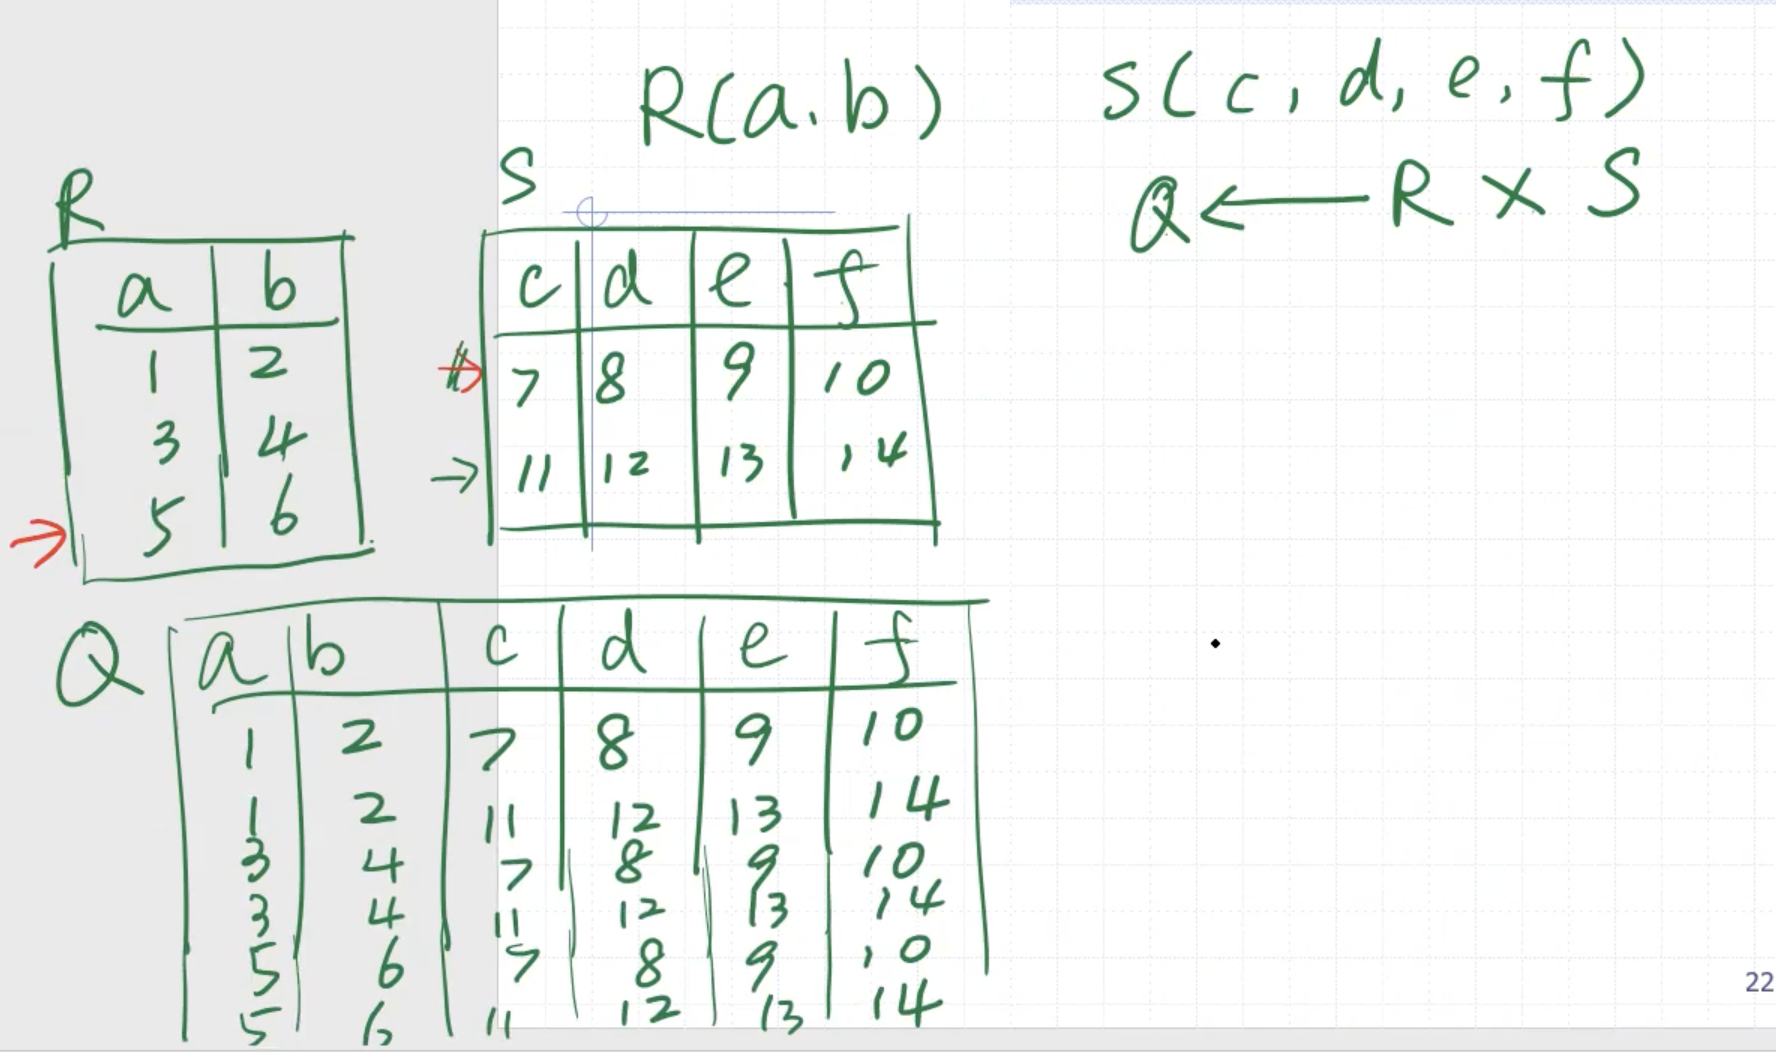 R(a.b)
S(c, d, e, f)
Q ← R × S
R
a b
1 2
3 4
→ 5 6
S
c d e f
→ 7 8 9 10
→ 11 12 13 14
Q
a b c d e f
1 2 7 8 9 10
1 2 11 12 13 14
3 4 7 8 9 10
3 4 11 12 13 14
5 6 7 8 9 10
5 6 11 12 13 14
22